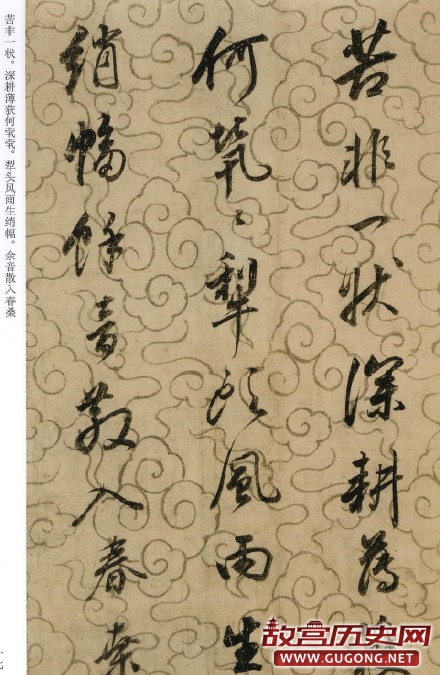 苦非一状深耕薄
何煢〻犁頭風雨生
綃幅餘音散入春桑
苦非一状。深耕薄获何茕茕。犁头风雨生绡幅。余音散入春桑
一七
故宫历史网
WWW.GUGONG.NET